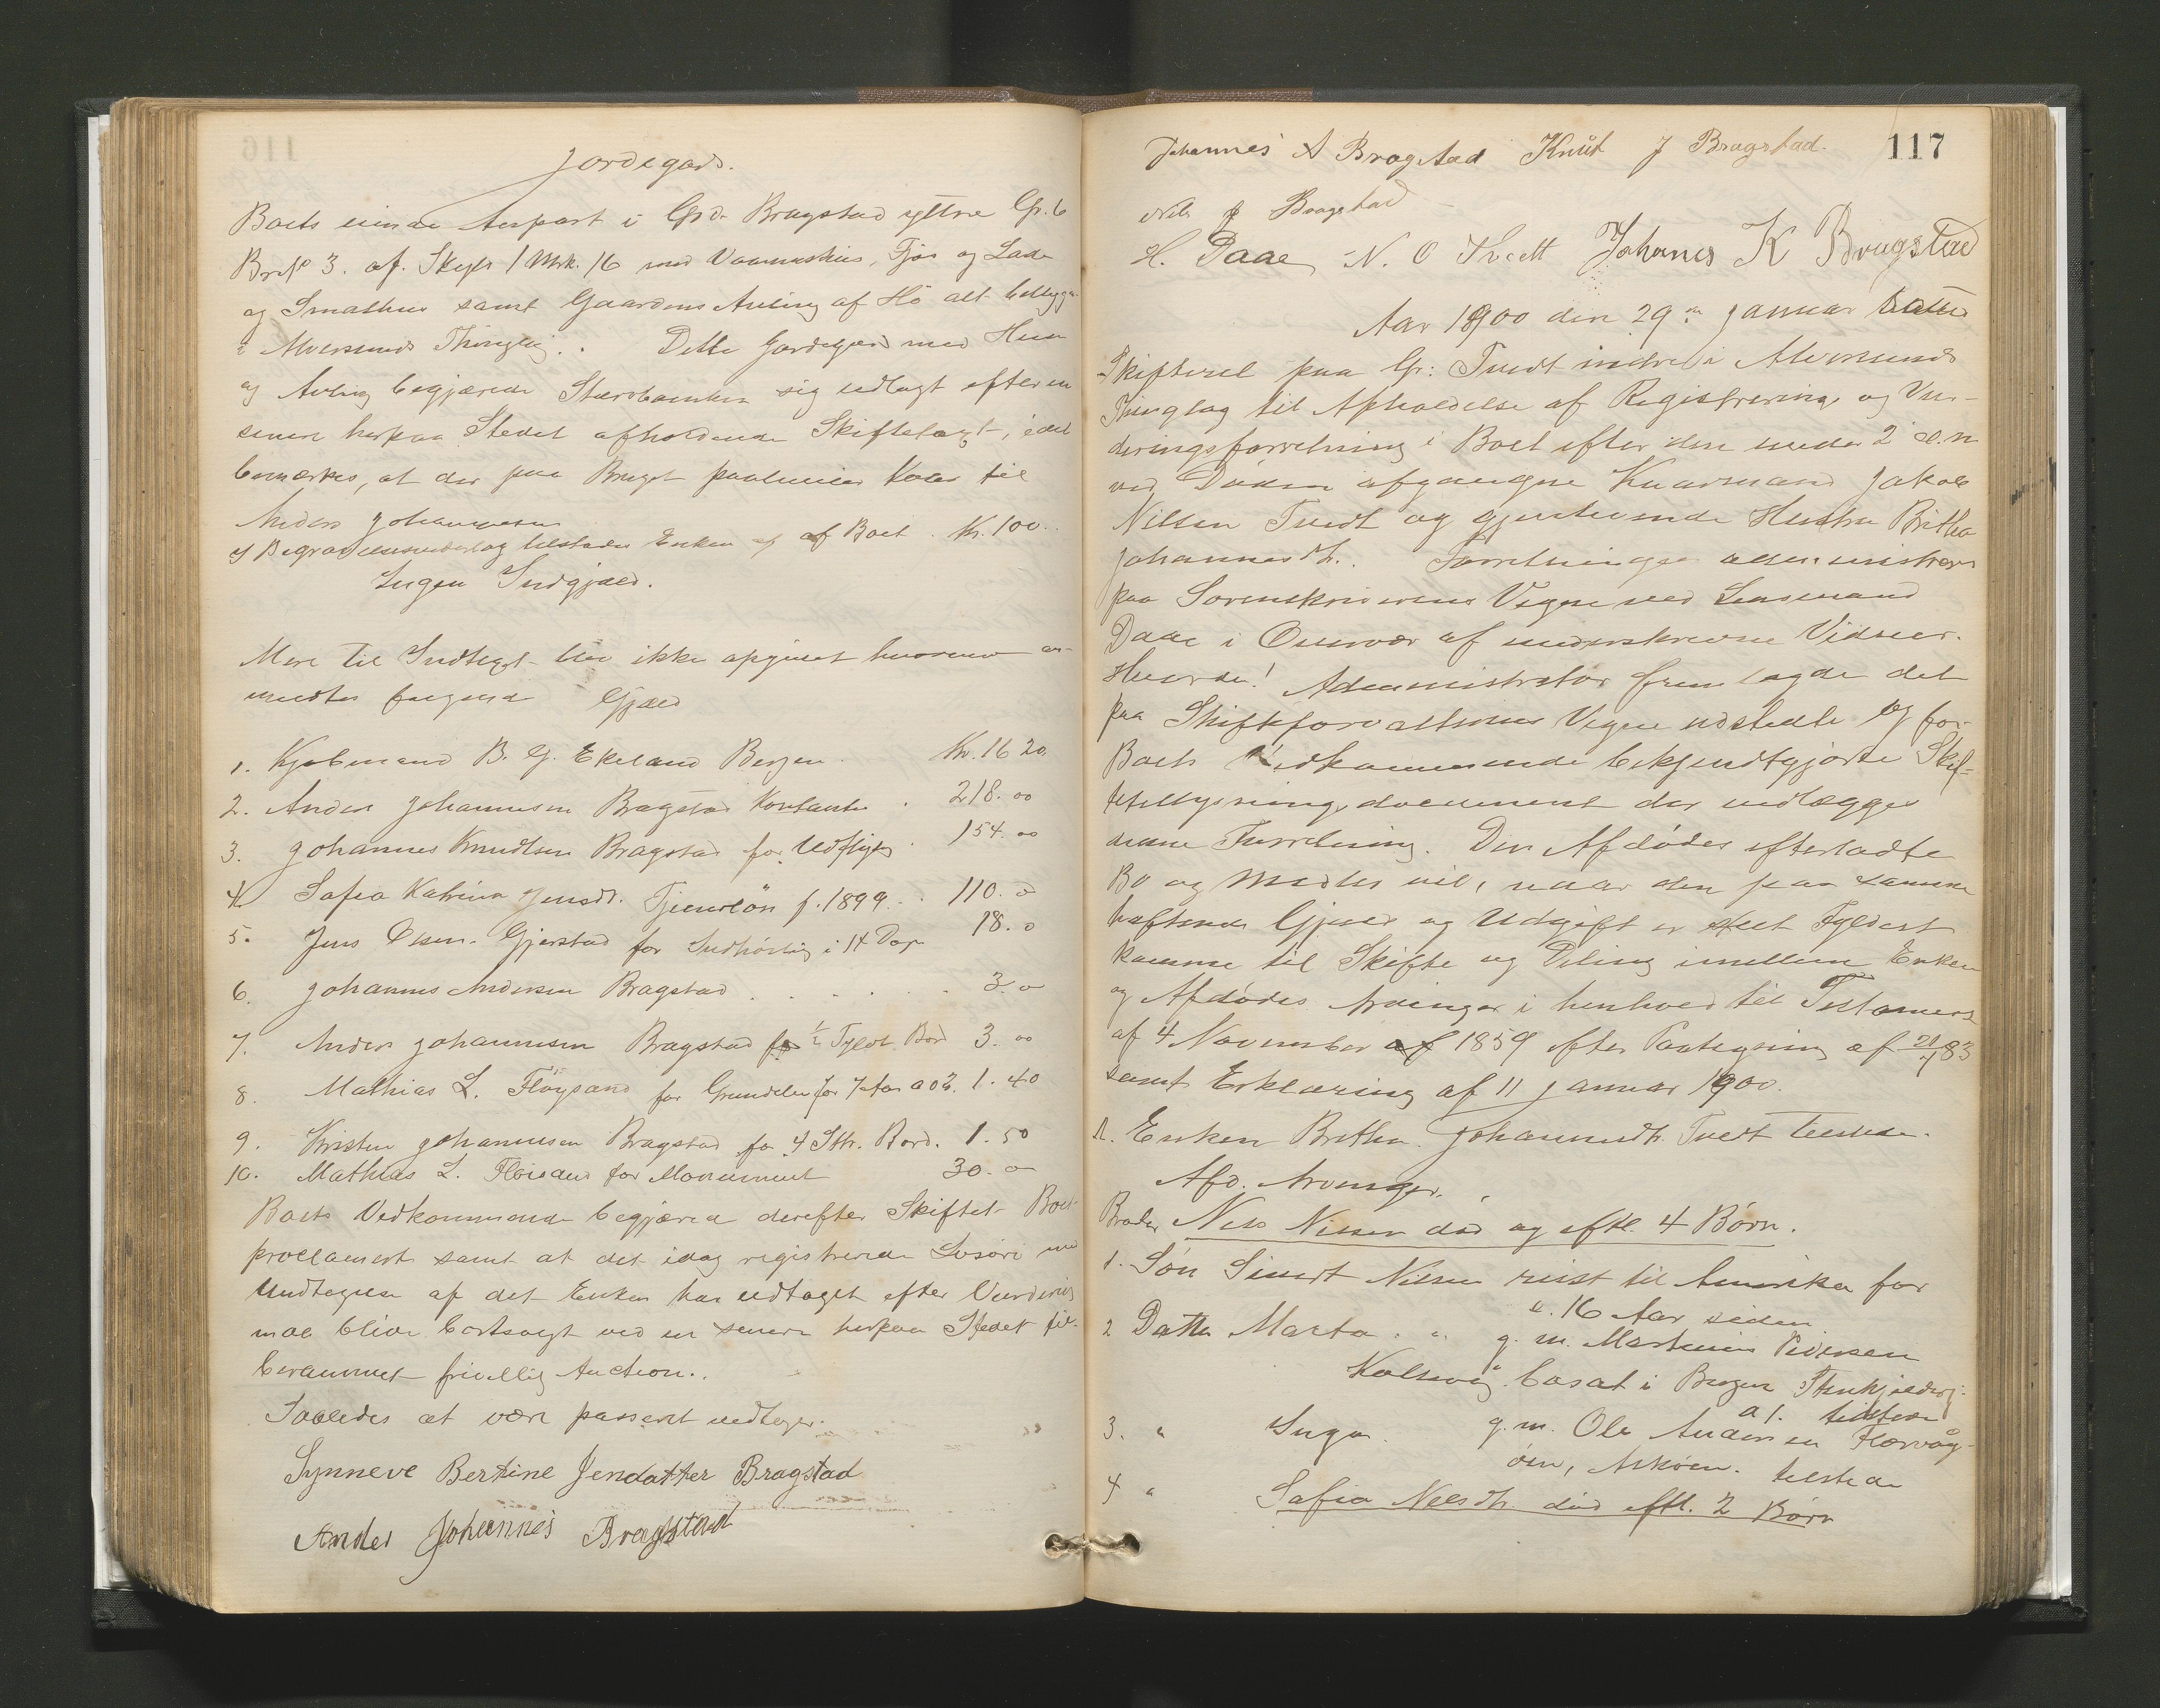 Jordegods.
Boets eiende Anpart i Grd. Bragstad yttre Gr. 6
Brs№ 3. af Skyld 1 Mrk. 16 med Vaaningshus, Fjös og Lade
og Smaahus samt Gaardens Avling af Hö alt beligg-
i Alversunds Thinglag. Dette Jordegods med Huse
og Avling begjærede Stervboenken sig udlagt efter en
senere herpaa Stedet afholdende Skiftetaxt, idet
bemærkes, at der paa Bruget paahviler Kaar til
Anders Johannesen
I Begravelsesudlæg tilstaaes Enken af Boet . Kr. 100.
Ingen Indgjæld.
Mere til Indtægt blev ikke opgivet hvorimod an-
meldtes følgende Gjæld
1. Kjøbmand B. G. Ekeland Bergen. Kr. 16 20
2. Anders Johannesen Bragstad Kontante . 218. 00
3. Johannes Knudsen Bragstad for Udflyt . 154. 00
4. Safia Katrine Jensdt. Tjenerlön f. 1899. . 110. 0
5. Jens Olsen Gjerstad for Indhöstning i 14 Dage 18. 0
6. Johannes Andersen Bragstad . . . . . . 3. 0
7. Anders Johannesen Bragstad for ½ Tylvt Bord 3. 00
8. Mathias L. Flöysand for Grundleie for 7 Aar a 02. 1. 40
9. Kristen Johannesen Bragstad for 4 Stk. Bord. 1. 50
10. Mathias L. Flöisand for Monument 30. 0
Boets Vedkommende begjærede derefter Skiftet Boet
proclameret samt at det idag registrerede Lösöre med
Undtagelse af det Enken har udtaget efter Vurdering
maa blive bortsolgt ved en senere herpaa Stedet
berammet frivillig Auction.
Saaledes at være passeret vedtages.
Synneve Bertine Jendatter Bragstad
Ander Johannes Bragstad
117
Johannes A Bragstad Knut J Bragstad.
Nils J Bragstad
H. Daae N. O Tveitt Johanes K Bragstad
Aar 1900 den 29de Januar sattes
Skifteret paa Gr: Tvedt indre i Alversunds
Thinglag til Afholdelse af Registrerings og Vur-
deringsforretning i Boet efter den under 2 d.m
ved Döden afgangne Kaarmand Jakob
Nilsen Tvedt og gjenlevende Hustru Britha
Johannesdt. Forretningen administreres
paa Sorenskriverens Vegne ved Lensmand
Daae i Overvær af underskrevne Vidner.
Hvorda! Administrator fremlagde det
paa Skifteforvalterens Vegne udstedte og for
Boets Vedkommende bekjendtgjorte Skif-
tetillysningsdocument der vedlægges
denne Forretning. Den Afdödes efterladte
Bo og Midler vil, naar den paa samme
heftende Gjæld og Udgift er skeet Fyldest
komme til Skifte og Deling imellem Enken
og Afdödes Arvinger i henhold til Testament
af 4 November af 1859 efter Paategning af 21/7 83
samt Erklæring af 11 Januar 1900.
A. Enken Britha Johannesdt. Tvedt tilstede.
Afd. Arvinger.
Broder Nils Nilsen död og eftl. 4 Börn.
1. Sön Sivert Nilsen reist til Amerika for
c. 16 Aar siden.
2 Datter Marta . " g. m. Martinus Pedersen
Kolsvig bosat i Bergen
a 1. tilstede
3. " Inga. g. m. Ole Andersen Florvåg
öen, Asköen. tilstede
4 " Safia Nilsdt. död eftl. 2 Börn